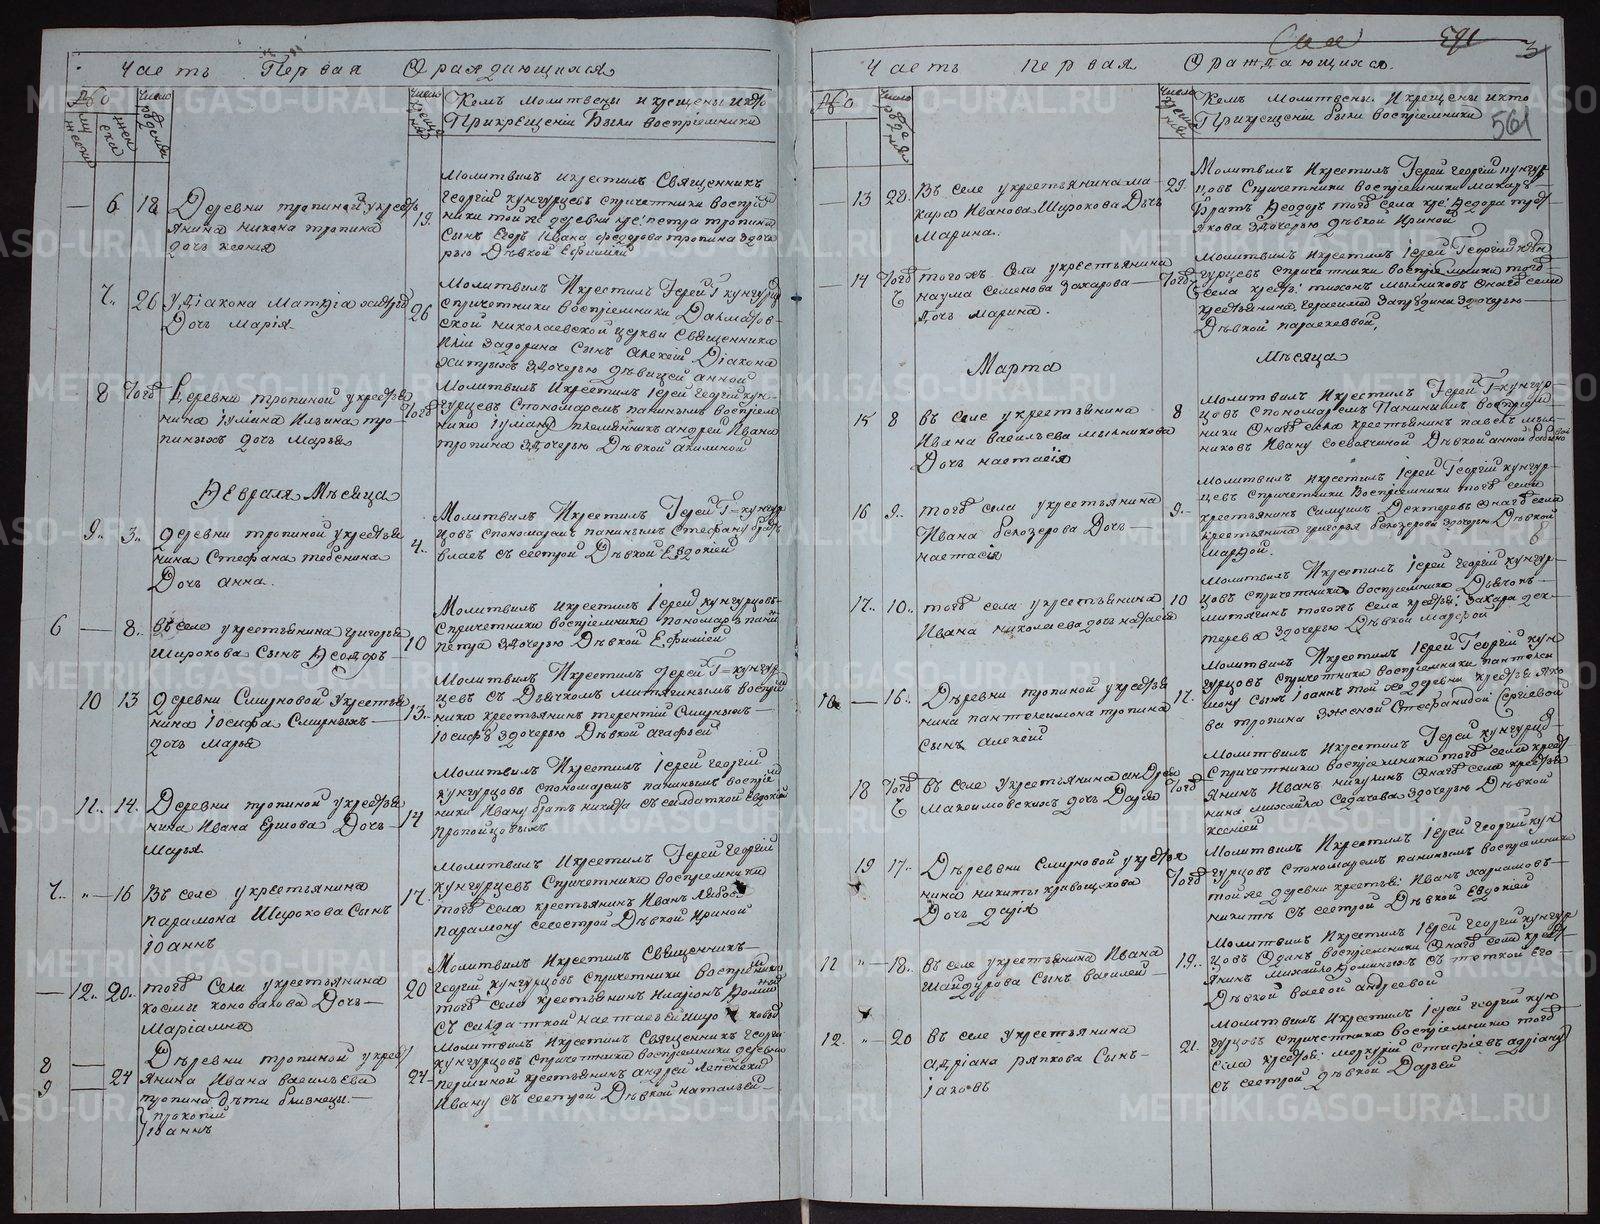 Часть Первая Ораждающихся
№о
мужеска
женска
Число рожденiя
Число крещенiя
Кемъ молитвены и крещены икто
Прикрещенiи Были воспрiемники
6 18 Деревни тропиной укресть
янина никона тропина
дочь ксенiя
19.
молитвилъ икрестилъ Священникъ
Георгiй кунгурцевъ спричетники воспрiем
ники той же деревни кре: петра тропина
сынъ Егоръ Ивана федорова тропина здоче
рью Дѣвкой Ефимiей
7. 26 удiакона Матѳiа
Дочь Марiя
26
Молитвилъ Икрестилъ Iерей Г кунгурц
спричетники воспрiемники Далматов
ской николаевской церкви Священника
Илiи Задорина сынъ Алексiй Дiакона
здочерью дѣвицей анной
8 Тогд Деревни тропиной укрестья
нина iулiана Ильина тро
пиныхъ дочь Марья
Тогд
Молитвилъ Икрестилъ iерей Георгiй кун
гурцевъ спономаремъ панинымъ воспрiем
ники iулiану племянникъ андрей Ивана
тропина здочерью Дѣвкой акилиной
Февраля Мѣсяца
9. 3. Деревни тропиной укрестья
нина Стефана
Дочь анна.
4.
Молитвилъ Икрестилъ Iерей Г=кунгур
цовъ спономаремъ панинымъ Стефану братъ
влаевъ с сестрой Дѣвкой Евдокiей
6 — 8. въ селе укрестьянина григорья
Широкова Сынъ Ѳеодоръ
10
Молитвилъ икрестилъ Iерей кунгурцовъ
Спричетники воспрiемники пономарь панин
петра здочерью Дѣвкой Ефимiей
10 13 Деревни Смирновой Укрестья
нина Iосифа Смирныхъ
дочь Марья
13.
Молитвилъ Икрестилъ Iерей Г=кунгур
цевъ съ Дьячкомъ митягинымъ воспрiем
ники крестьянинъ терентiй Смирныхъ
Iосифъ здочерью Дѣвкой агафьей
11. 14. Деревни тропиной укрестья
нина Ивана Ершова Дочь
Марья
14
Молитвилъ Икрестилъ iерей георгiй
кунгурцовъ спономаремъ панинымъ воспрiем
ники Ивану братъ никифоръ съ солдаткой Евдокiей
7. — 16 Въ селе укрестьянина
парамона Широкова Сынъ
iоаннъ
17.
молитвилъ Икрестилъ Iерей георгiй
кунгурцевъ Спричетники воспрiемники
тогд села крестьянинъ Иванъ
парамону ссестрой Дѣвкой Ириной
12. 20. тогд Села укрестьянина
космы коновалова Дочь
Марiамна
20
Молитвилъ Икрестилъ Священникъ
георгiй кунгурцовъ спричетники воспрiемники
тогд села крестьянинъ Иларiонъ
съ солдаткой настасьей Широковой
8 — 24 Дѣревни тропиной укрест
9 — янина Ивана васильева
тропина дѣти близнецы
прокопiй
iоаннъ
24
Молитвилъ Икрестилъ Священникъ георгiй
кунгурцовъ спричетники воспрiемники деревни
першиной крестьянинъ андрей
Ивану съ сестрой Дѣвкой натальей
Часть первая Ораждающихся.
3
561
№о
Число рожденiя
Число крещенiя
Кемъ молитвены. Икрещены икто
Прикрещенiи были воспрiемники
13 28. Въ селе укрестьянина ма
кара Иванова Широкова Дочь
Марина.
29.
Молитвилъ Икрестилъ Iерей георгiй кунгур
цовъ Спричетники воспрiемники макаръ
Братъ Ѳеодоръ тогд села кре: Ѳедора
Якова здочерью дѣвкой Ириной
14 Тогд тогожъ Села укрестьянина
наума семенова Захарова
дочь Марина.
Тогд
молитвилъ Икрестилъ iерей Георгiй кун
гурцевъ спричетники воспрiемники тогд
села крестья: тихонъ мыльниковъ Онагд села
крестьянина герасима здочерью
Дѣвкой параскеввой,
Марта Мѣсяца
15 8 въ селе укрестьянина
Ивана васильева мыльникова
Дочь настасiя
8
молитвилъ Икрестилъ Iерей Г=кунгур
цовъ Спономаремъ Панинымъ воспрiем
ники Онагд села крестьянинъ павелъ мыль
никовъ Ивану Дѣвкой анной
16 9. тогд села укрестьянина
Ивана белозерова Дочь
настасiя
9.
молитвилъ Икрестилъ iерей Георгiй кунгур
цевъ спричетники Воспрiемники тогд села
крестьянинъ Самуилъ Дехтеревъ Онагд села
крестьянина григорья белозерова здочерью Дѣвкой
Марѳой.
17. 10. тогд села укрестьянина
Ивана николаева дочь настасiя
10
молитвилъ Икрестилъ iерей георгiй кунгур
цовъ спричетники воспрiемники Дьячокъ
митягинъ тогожъ села крестья: Захара дех
терева здочерью Дѣвкой марѳой
10. — 16. Дѣревни тропиной укрестья
нина пантелеимона тропина
Сынъ алексiй
17.
молитвилъ Икрестилъ Iерей Георгiй кун
гурцовъ спричетники воспрiемники пантелеи
мону сынъ iоаннъ той же деревни крестья Яко
ва тропина зженой Стефанидой Сергiевой
18 Тогд въ селе Укрестьянина андрея
Максимовскихъ дочь Дарья
Тогд
Молитвилъ Икрестилъ Iерей кунгурцо
Спричетники воспрiемники тогд села крест
Янинъ Иванъ никулинъ Онагд села крестья
нина михайла Седачева здочерью Дѣвкой
ксенiей
19 17. Дѣревни Смирновой укрестья
нина никиты кривощекова
Дочь дарiя
Тогд
Молитвилъ Икрестилъ iерей георгiй кун
гурцовъ спономаремъ панинымъ воспрiемники
той же деревни крестья: Иванъ харламовъ
никиты съ сестрой Дѣвкой Евдокiей
11 — 18. въ селе укрестьянина Ивана
Шайдурова сынъ василей
19.
Молитвилъ Икрестилъ Iерей георгiй кунгур
цовъ Одинъ воспрiемники Онагд села крест
янинъ михайло съ теткой его
Дѣвкой вассой андреевой
12. 20 въ селе укрестьянина
адрiана ряпкова Сынъ
iаковъ
21.
молитвилъ Икрестилъ Iерей георгiй кун
гурцовъ спричетники воспрiемники тогд
села крестья: меркурiй Стасѣевъ адрiану
съ сестрой дѣвкой Дарьей
METRIKI.GASO-URAL.RU